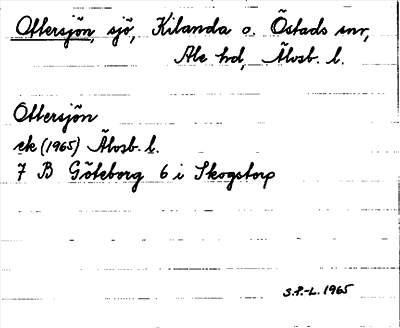 Ottersjön, sjö, Kilanda o. Östads snr,
Ale hd, Älvsb. l.
Ottersjön
ek (1965) Älvsb. l.
7 B Göteborg 6 i Skogstorp
S.P.-L. 1965